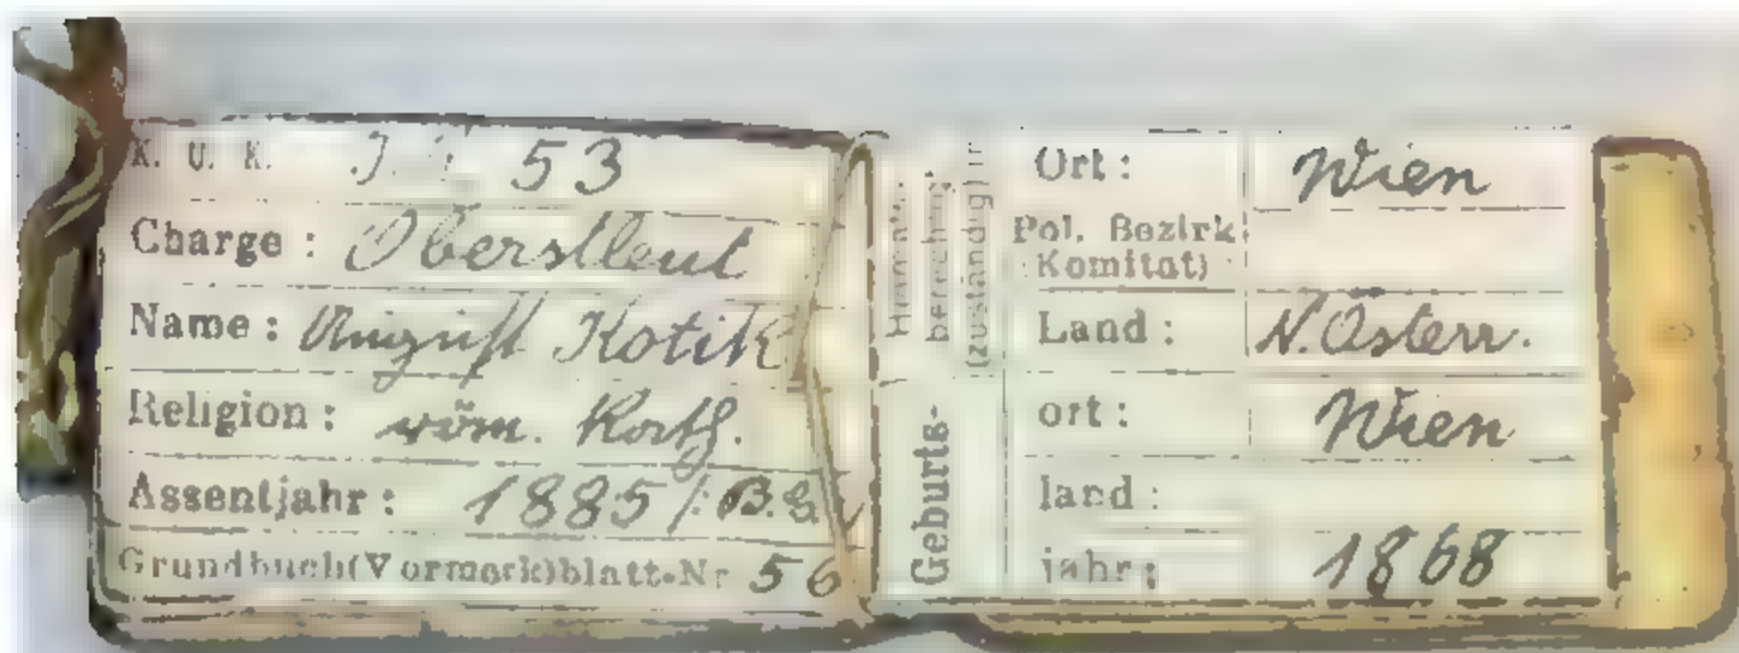 K. U. K. J. 53
Charge : Oberstleut
Name : August Kotik
Religion : röm. Kath.
Assentjahr : 1885 /: B.
Grundbuch(Vormerk)blatt-Nr 56
Heimats-
berechtigt
(zuständig) in
Ort : Wien
Pol. Bezirk
Komitat)
Land : N. Österr.
Geburts-
ort : Wien
land :
jahr : 1868